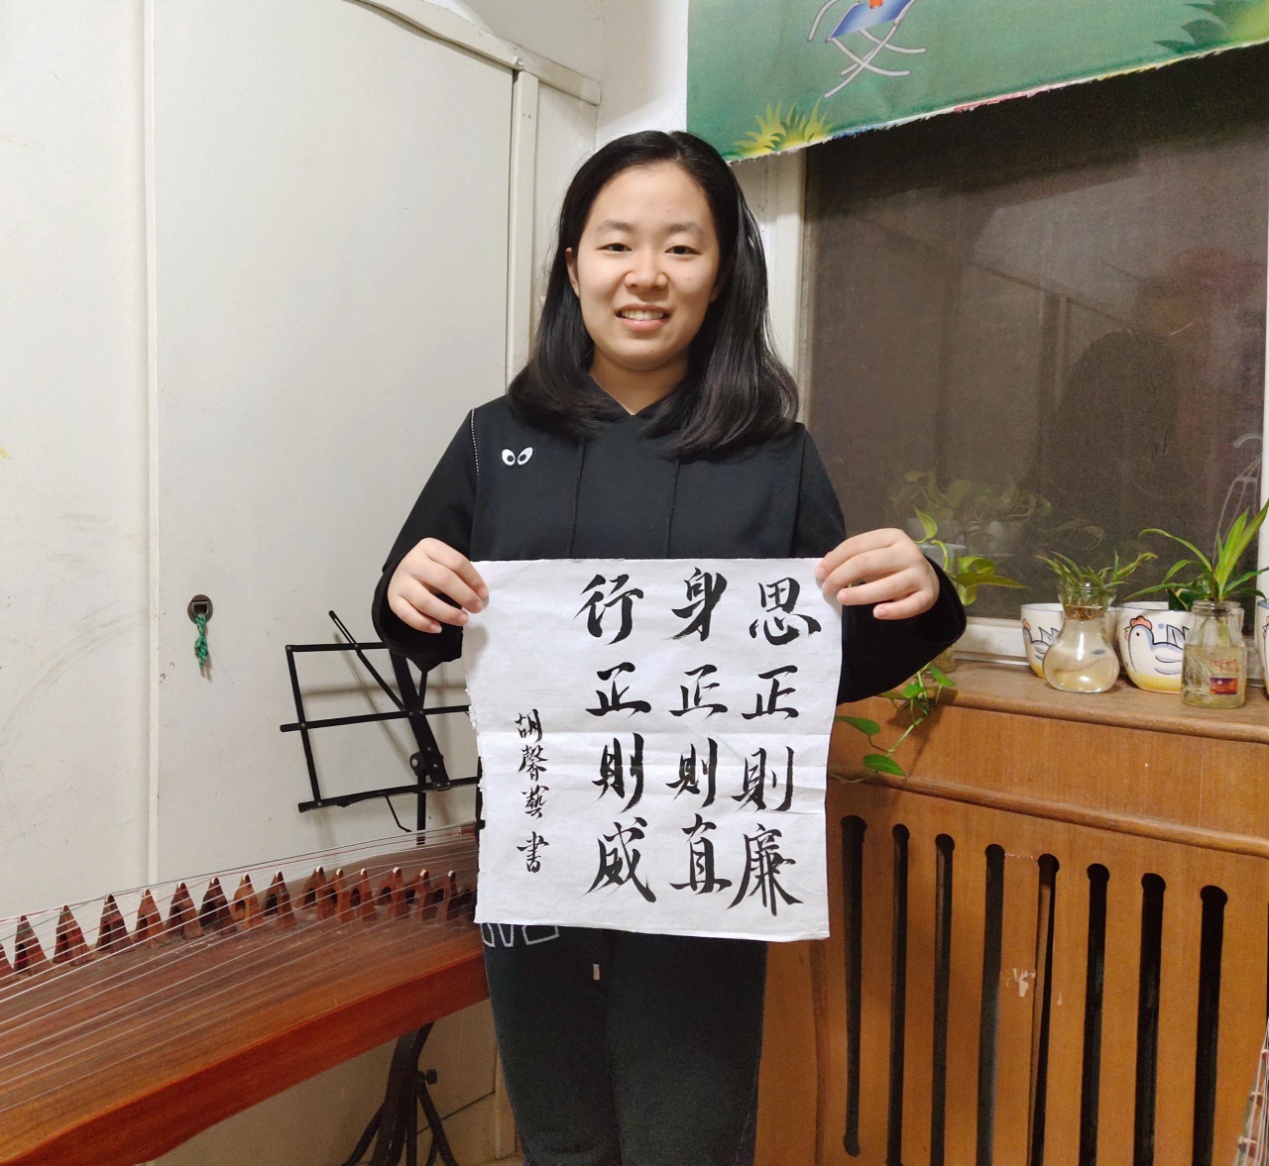 思正則廉
身正則直
行正則威
胡馨藝書